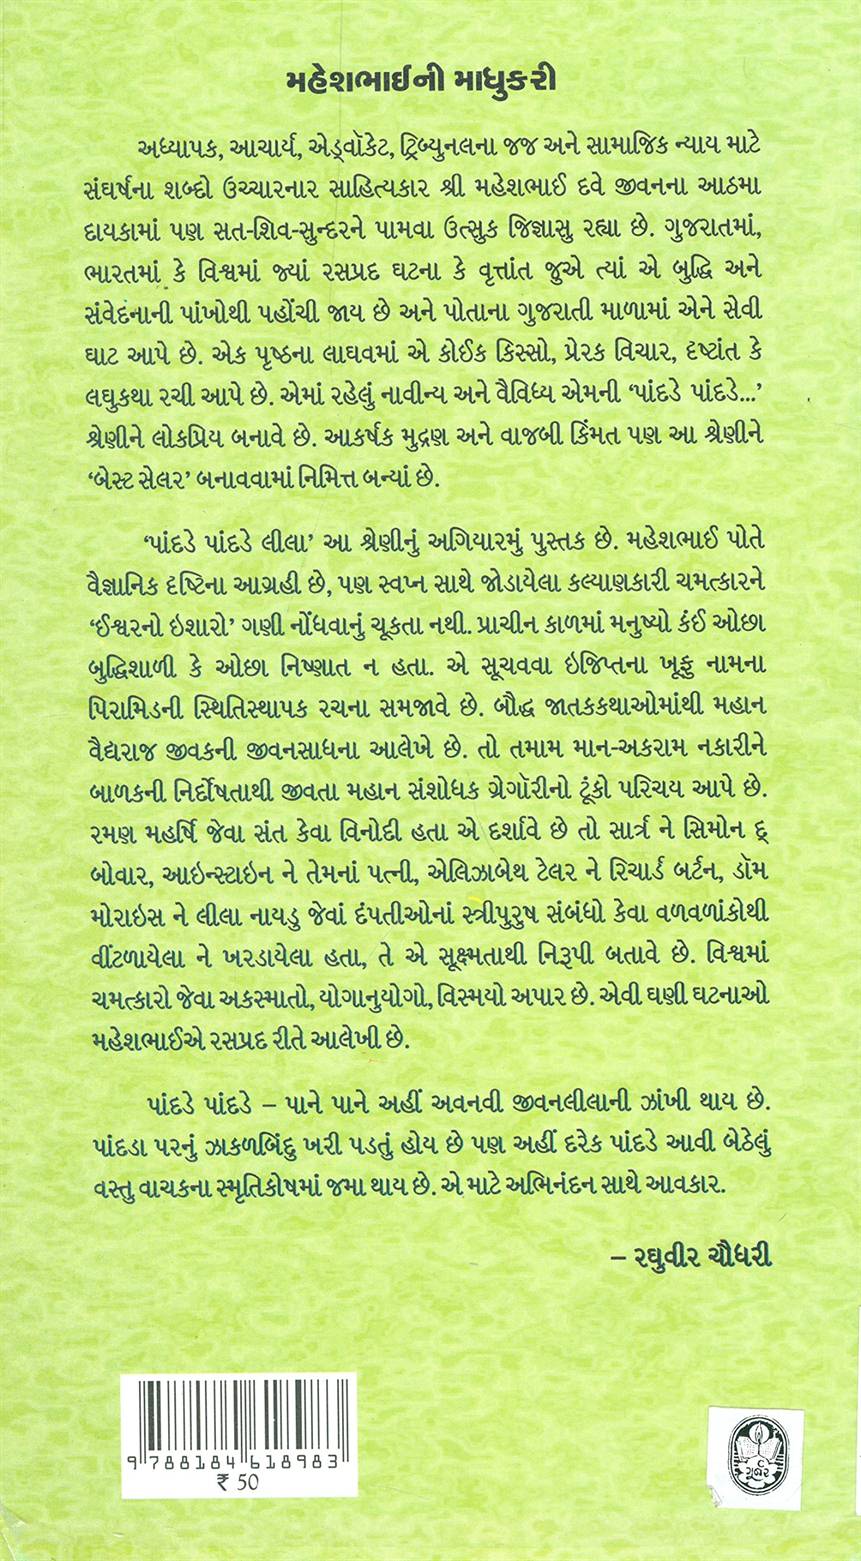 મહેશભાઈની માધુકરી
અધ્યાપક, આચાર્ય, એડ્વૉકેટ, ટ્રિબ્યુનલના જજ અને સામાજિક ન્યાય માટે
સંઘર્ષના શબ્દો ઉચ્ચારનાર સાહિત્યકાર શ્રી મહેશભાઈ દવે જીવનના આઠમા
દાયકામાં પણ સત-શિવ-સુન્દરને પામવા ઉત્સુક જિજ્ઞાસુ રહ્યા છે. ગુજરાતમાં,
ભારતમાં કે વિશ્વમાં જ્યાં રસપ્રદ ઘટના કે વૃત્તાંત જુએ ત્યાં એ બુદ્ધિ અને
સંવેદનાની પાંખોથી પહોંચી જાય છે અને પોતાના ગુજરાતી માળામાં એને સેવી
ઘાટ આપે છે. એક પૃષ્ઠના લાઘવમાં એ કોઈક કિસ્સો, પ્રેરક વિચાર, દૃષ્ટાંત કે
લઘુકથા રચી આપે છે. એમાં રહેલું નાવીન્ય અને વૈવિધ્ય એમની ‘પાંદડે પાંદડે...’
શ્રેણીને લોકપ્રિય બનાવે છે. આકર્ષક મુદ્રણ અને વાજબી કિંમત પણ આ શ્રેણીને
‘બેસ્ટ સેલર’ બનાવવામાં નિમિત્ત બન્યાં છે.
‘પાંદડે પાંદડે લીલા’ આ શ્રેણીનું અગિયારમું પુસ્તક છે. મહેશભાઈ પોતે
વૈજ્ઞાનિક દૃષ્ટિના આગ્રહી છે, પણ સ્વપ્ન સાથે જોડાયેલા કલ્યાણકારી ચમત્કારને
‘ઈશ્વરનો ઇશારો’ ગણી નોંધવાનું ચૂકતા નથી. પ્રાચીન કાળમાં મનુષ્યો કંઈ ઓછા
બુદ્ધિશાળી કે ઓછા નિષ્ણાત ન હતા. એ સૂચવવા ઇજિપ્તના ખૂફુ નામના
પિરામિડની સ્થિતિસ્થાપક રચના સમજાવે છે. બૌદ્ધ જાતકકથાઓમાંથી મહાન
વૈદ્યરાજ જીવકની જીવનસાધના આલેખે છે. તો તમામ માન-અકરામ નકારીને
બાળકની નિર્દોષતાથી જીવતા મહાન સંશોધક ગ્રેગૉરીનો ટૂંકો પરિચય આપે છે.
રમણ મહર્ષિ જેવા સંત કેવા વિનોદી હતા એ દર્શાવે છે તો સાર્ત્ર ને સિમોન દ્
બોવાર, આઇન્સ્ટાઇન ને તેમનાં પત્ની, એલિઝાબેથ ટેલર ને રિચાર્ડ બર્ટન, ડૉમ
મોરાઇસ ને લીલા નાયડુ જેવાં દંપતીઓનાં સ્ત્રીપુરુષ સંબંધો કેવા વળવળાંકોથી
વીંટળાયેલા ને ખરડાયેલા હતા, તે એ સૂક્ષ્મતાથી નિરૂપી બતાવે છે. વિશ્વમાં
ચમત્કારો જેવા અકસ્માતો, યોગાનુયોગો, વિસ્મયો અપાર છે. એવી ઘણી ઘટનાઓ
મહેશભાઈએ રસપ્રદ રીતે આલેખી છે.
પાંદડે પાંદડે – પાને પાને અહીં અવનવી જીવનલીલાની ઝાંખી થાય છે.
પાંદડા પરનું ઝાકળબિંદુ ખરી પડતું હોય છે પણ અહીં દરેક પાંદડે આવી બેઠેલું
વસ્તુ વાચકના સ્મૃતિકોષમાં જમા થાય છે. એ માટે અભિનંદન સાથે આવકાર.
– રઘુવીર ચૌધરી
9 788184 618983
₹ 50
ગૂર્જર